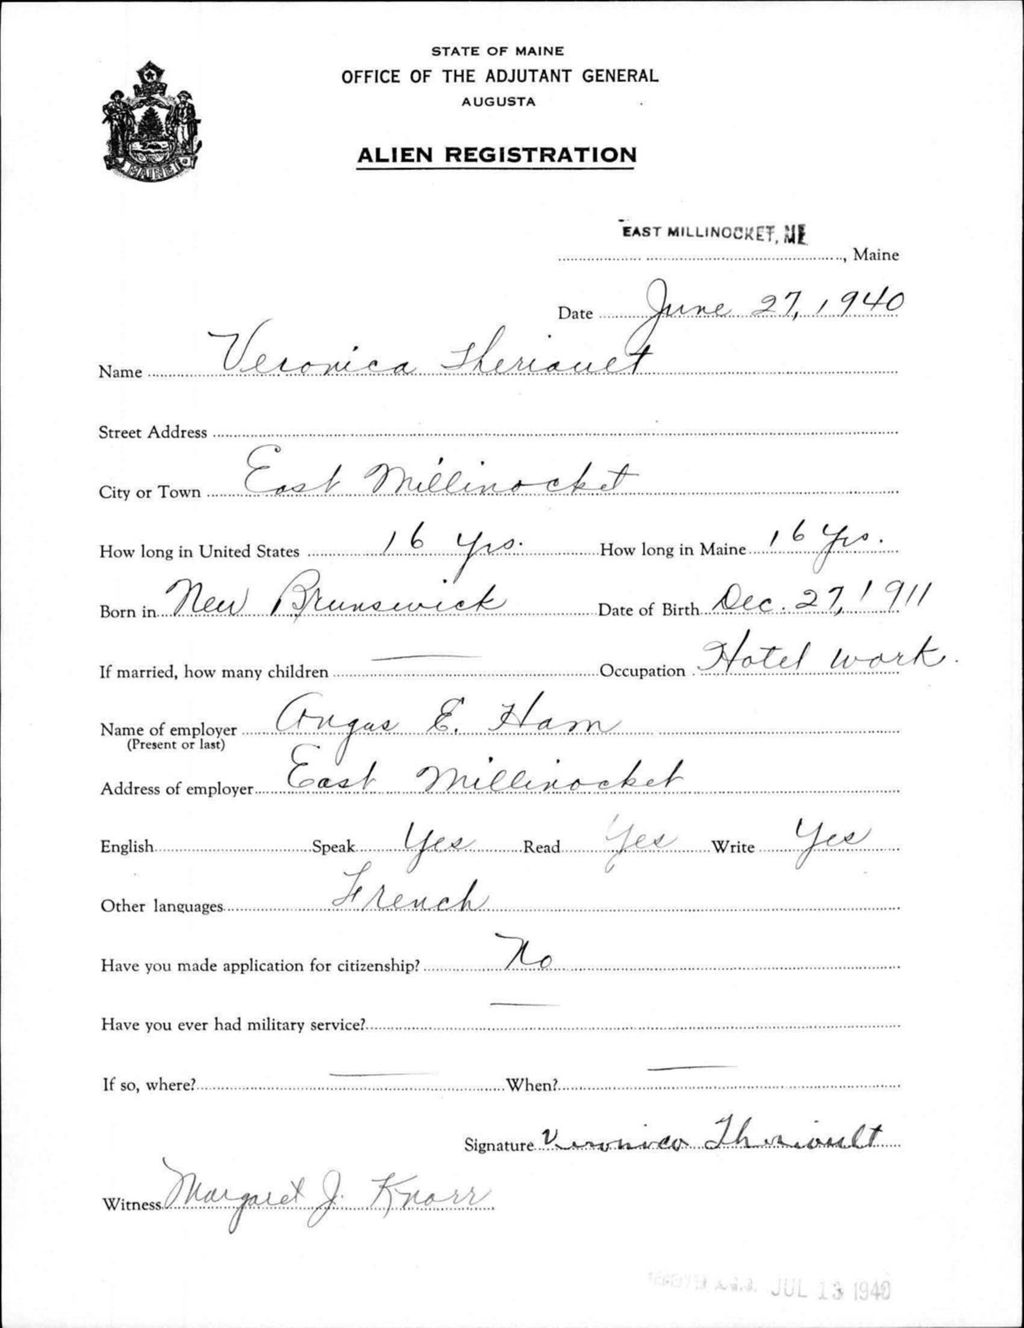 STATE OF MAINE
OFFICE OF THE ADJUTANT GENERAL
AUGUSTA
ALIEN REGISTRATION
EAST MILLINOCKET, ME
, Maine
Date June 27, 1940
Name Veronica Theriault
Street Address
City or Town East Millinocket
How long in United States 16 yrs. How long in Maine 16 yrs.
Born in New Brunswick Date of Birth Dec. 27, 1911
If married, how many children — Occupation Hotel work.
Name of employer Angus E. Ham
(Present or last)
Address of employer East Millinocket
English Speak Yes Read Yes Write Yes
Other languages French
Have you made application for citizenship? No
Have you ever had military service? —
If so, where? — When? —
Signature Veronica Theriault
Witness Margaret J. Knorr
RECEIVED A.G.O. JUL 13 1940
MAINE